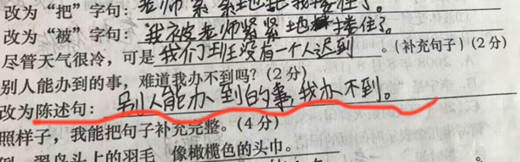 改为“把”字句：老师紧紧地把我搂住了。
改为“被”字句：我被老师紧紧地搂住了。
尽管天气很冷，可是我们班没有一个人迟到。(补充句子)(2分)
别人能办到的事，难道我办不到吗？(2分)
改为陈述句：别人能办到的事我办不到。
照样子，我能把句子补充完整。(4分)
翠鸟头上的羽毛 像橄榄色的头巾。